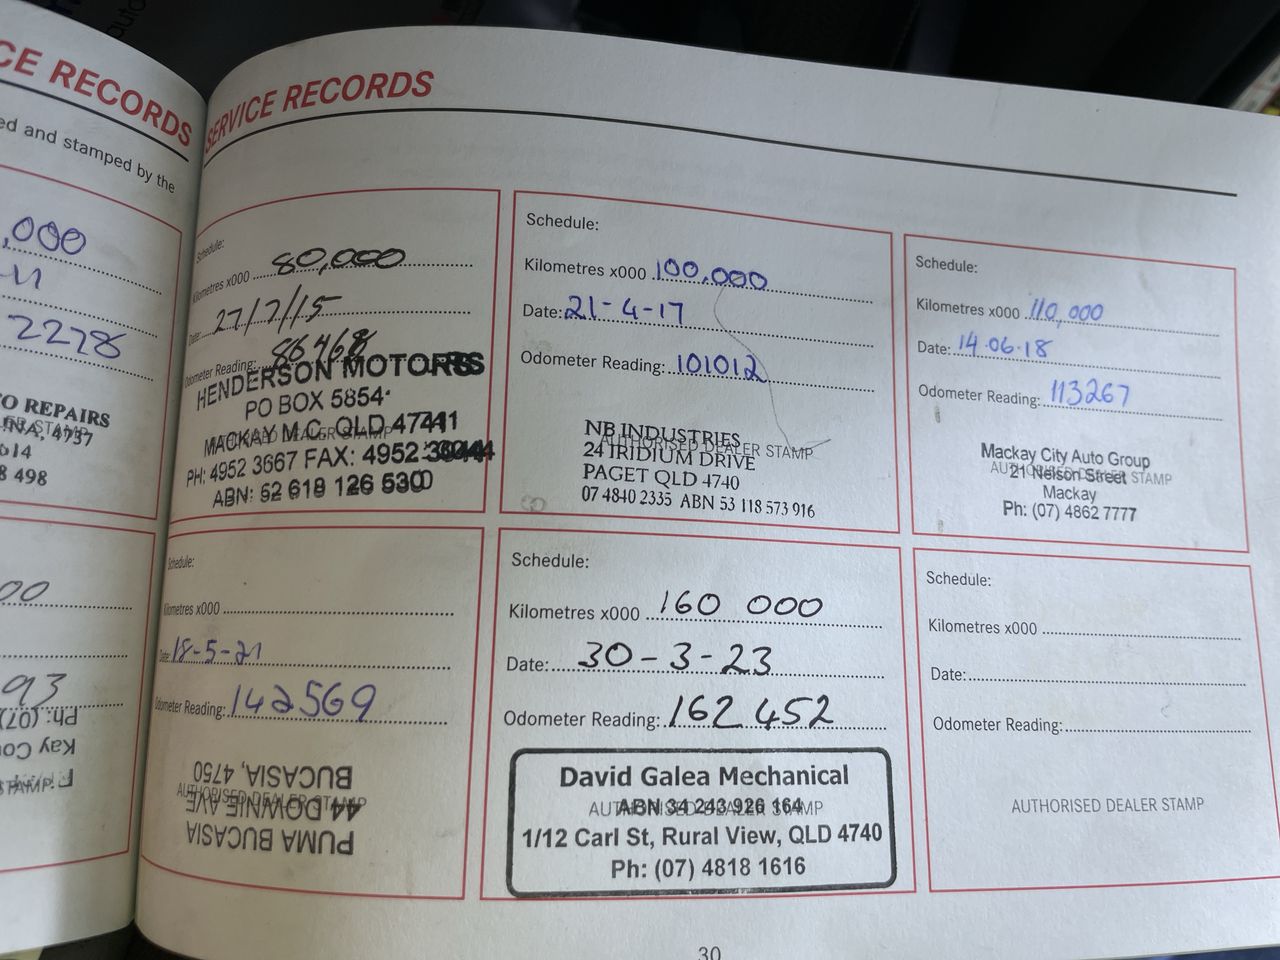 CE RECORDS
ed and stamped by the
,000
-11
2278
O REPAIRS
INA, 4737
614
8 498
00
93
Ph: (07)
Kay Cou
SERVICE RECORDS
Schedule:
Kilometres x000 80,000
Date: 27/7/15
Odometer Reading: 86468
HENDERSON MOTORS
PO BOX 5854
MACKAY M.C. QLD 4741
AUTHORISED DEALER STAMP
PH: 4952 3667 FAX: 4952
ABN: 62 619 126 530
Schedule:
Kilometres x000 100,000
Date: 21-4-17
Odometer Reading: 101012
NB INDUSTRIES
AUTHORISED DEALER STAMP
24 IRIDIUM DRIVE
PAGET QLD 4740
07 4840 2335 ABN 53 118 573 916
Schedule:
Kilometres x000 110,000
Date: 14.06.18
Odometer Reading: 113267
Mackay City Auto Group
AUTHORISED DEALER STAMP
21 Nelson Street
Mackay
Ph: (07) 4862 7777
Schedule:
Kilometres x000
Date: 18-5-21
Odometer Reading: 142569
PUMA BUCASIA
44 DOWNIE AVE
BUCASIA, 4750
AUTHORISED DEALER STAMP
Schedule:
Kilometres x000 160 000
Date: 30-3-23
Odometer Reading: 162 452
David Galea Mechanical
AUTHORISED DEALER STAMP
ABN 34 243 926 164
1/12 Carl St, Rural View, QLD 4740
Ph: (07) 4818 1616
Schedule:
Kilometres x000
Date:
Odometer Reading:
AUTHORISED DEALER STAMP
30